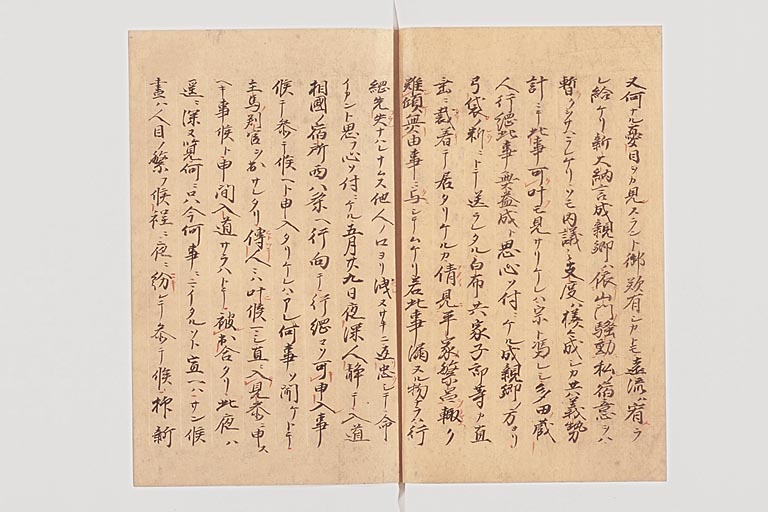 又何ナル憂目ヲカ見スラント御歎有シカトモ遠流ハ宥ラ
レ給ケリ新大納言成親卿ハ依山門騒動私宿意ヲハ
暫ヲサヘラレケリソモ内議支度ハ様々成シカ共義勢
計ニテ此事可叶モ見サリケレハ宗ト憑レシ多田蔵
人行綱此事無益成ト思心ソ付ニケル成親卿ノ方ヨリ
弓袋ノ料ニトテ送ラレタル白布共家子郎等カ直
垂ニ裁着テ居タリケルカ倩見平家繁昌輙ク
難傾無由事ニ与シテムケリ若此事漏ヌル物ナラハ行
綱先失ナハレナムス他人ノ口ヨリ洩ヌサキニ返忠シテ命
イカント思フ心ソ付ニケル五月廿九日夜深人静テ入道
相國ノ宿所西八条ヘ行向テ行綱コソ可申入事
候テ参テ候ヘト申入タリケレハアレ何事ソ聞ケトテ
主馬判官ヲ出サレタリ傳人ニハ叶候マシ直ニ入見参ニ申ス
ヘキ事候ト申間入道サラハトテ被出合タリ此夜ハ
遥ニ深ヌ覧何ニ只今何事ニキタルソト宣ヘハサン候
晝ハ人目ノ繁フ候程ニ夜ニ紛レテ参テ候抑新